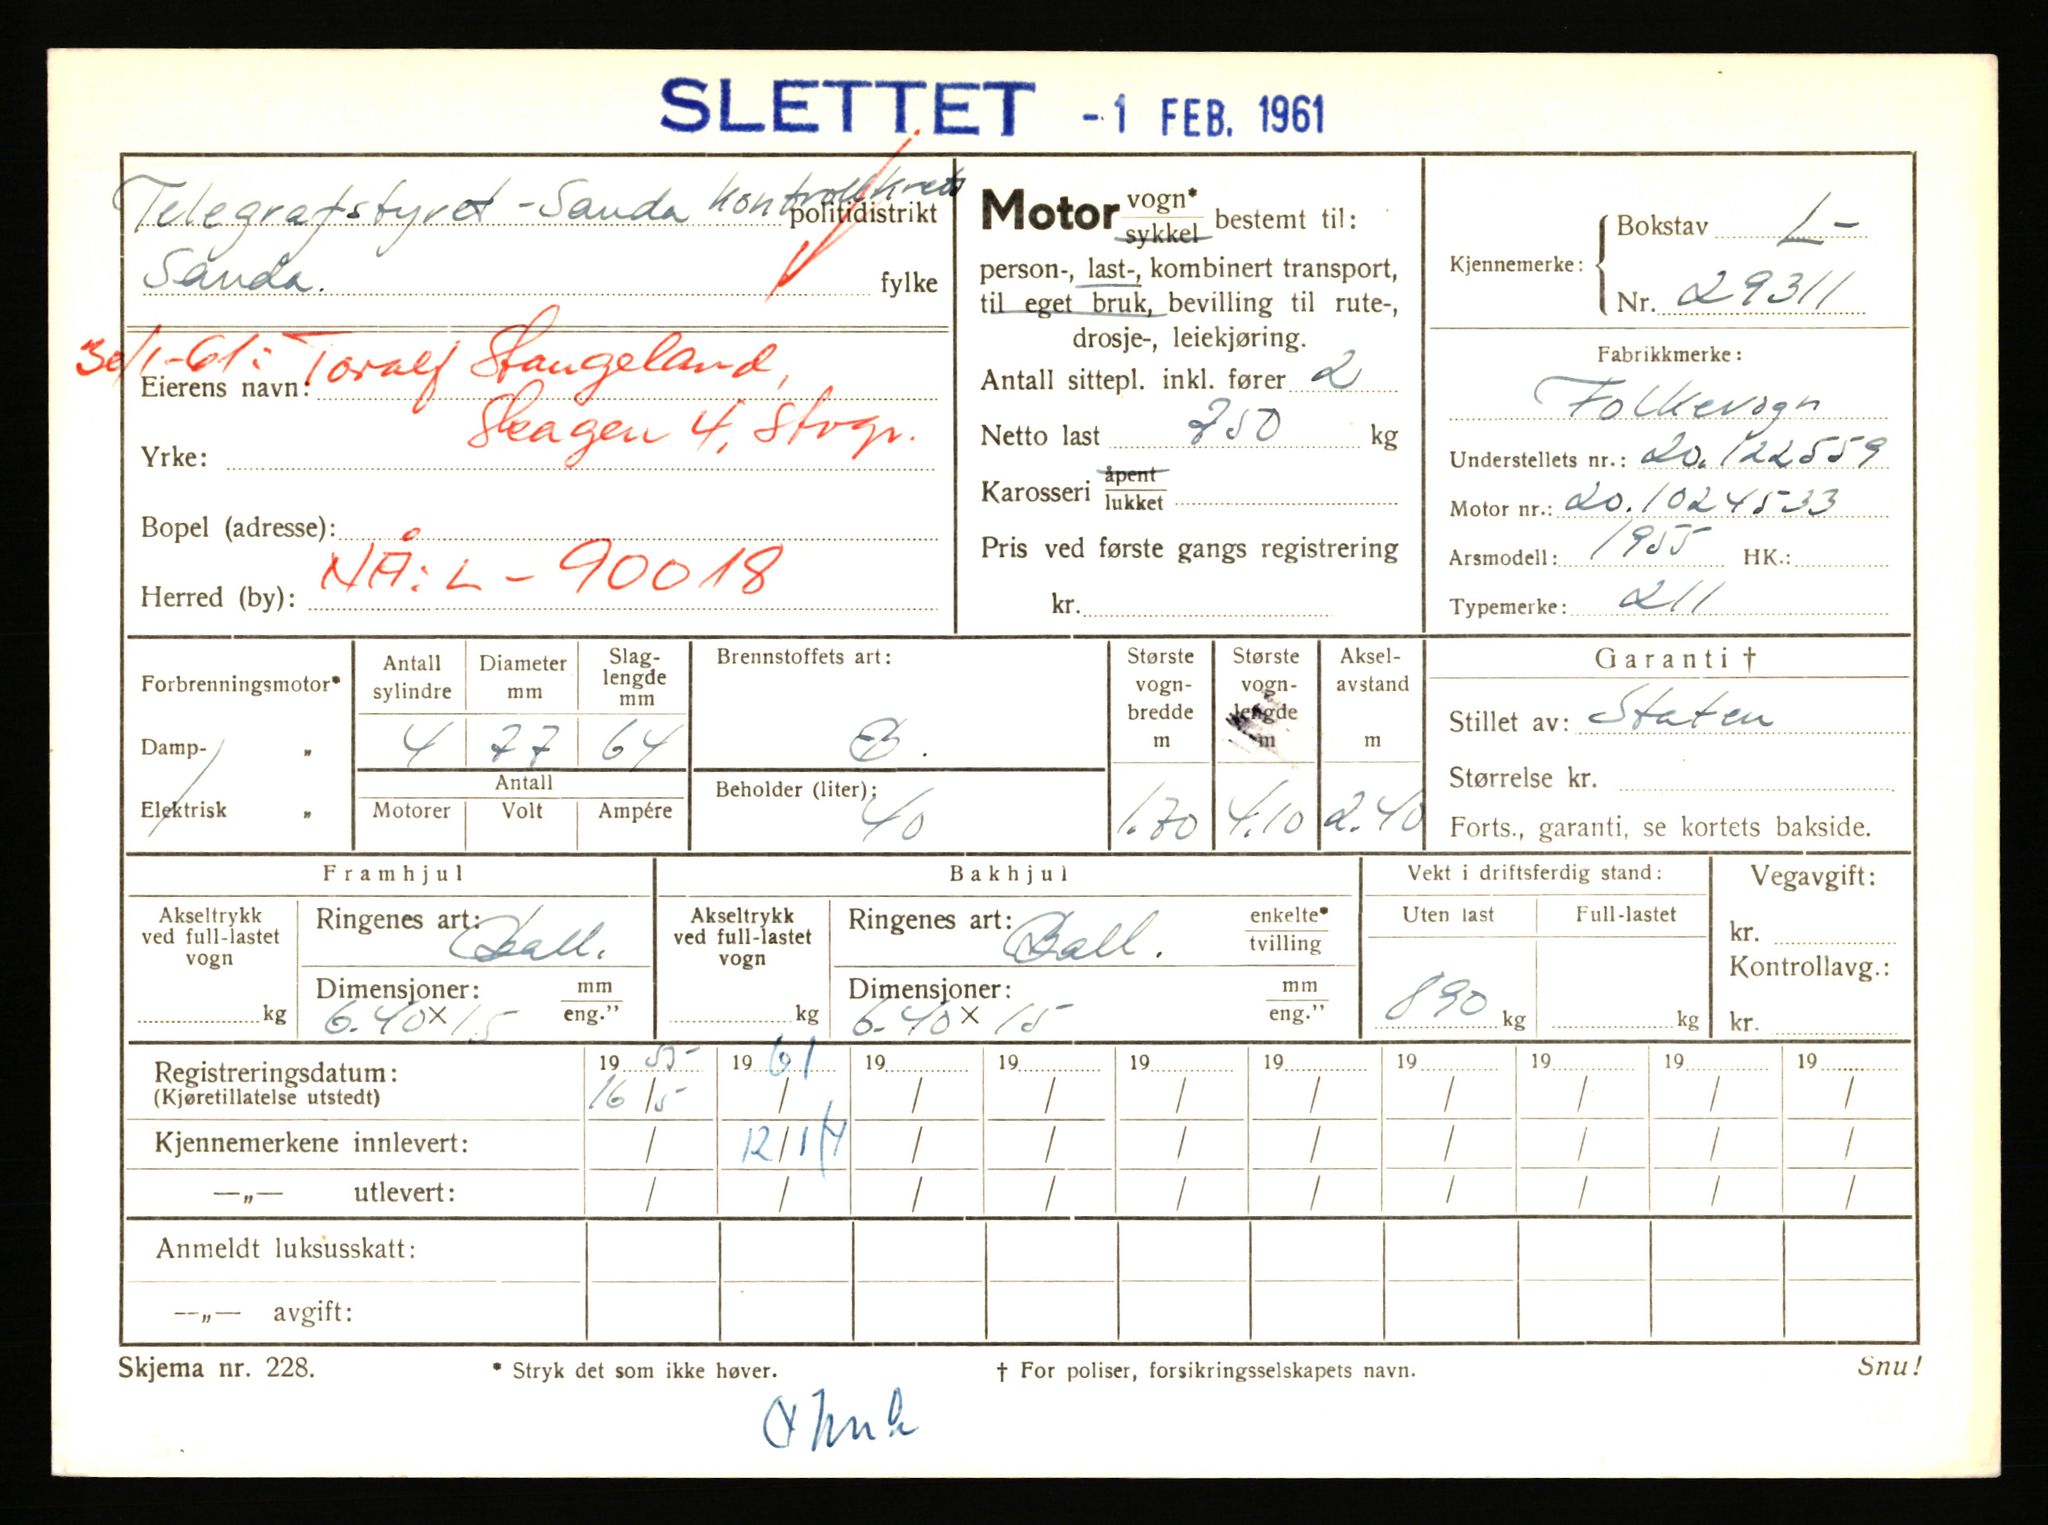 SLETTET -1 FEB. 1961
Telegrafstyret - Sanda kontrollkrets
politidistrikt
Sanda. fylke
30/1-61: Toralf Stangeland,
Eierens navn:
Skagen 4, Stvgr.
Yrke:
Bopel (adresse):
NÅ: L - 90018
Herred (by):
Motor vogn* sykkel bestemt til:
person-, last-, kombinert transport,
til eget bruk, bevilling til rute-,
drosje-, leiekjøring.
Antall sittepl. inkl. fører 2
Netto last 750 kg
Karosseri åpent lukket
Pris ved første gangs registrering
kr.
Kjennemerke: Bokstav L-
Nr. 29311
Fabrikkmerke:
Folkevogn
Understellets nr.: 20.122559
Motor nr.: 20.1024533
Arsmodell: 1955 HK.:
Typemerke: 211
Forbrenningsmotor*
Damp- „
Elektrisk „
Antall sylindre
Diameter mm
Slag-
lengde
mm
4 77 64
Antall
Motorer Volt Ampére
Brennstoffets art:
B.
Beholder (liter):
40
Største
vogn-
bredde
m
1.70
Største
vogn-
lengde
m
4.10
Aksel-
avstand
m
2.40
Garanti †
Stillet av: Staten
Størrelse kr.
Forts., garanti, se kortets bakside.
Framhjul
Akseltrykk
ved full-lastet
vogn
kg
Ringenes art: Ball.
Dimensjoner: mm eng.”
6.40 × 15
Bakhjul
Akseltrykk
ved full-lastet
vogn
kg
Ringenes art: Ball. enkelte* tvilling
Dimensjoner: mm eng.”
6.40 × 15
Vekt i driftsferdig stand:
Uten last Full-lastet
890 kg kg
Vegavgift:
kr.
Kontrollavg.:
kr.
Registreringsdatum: 19 55 19 61 19 19 19 19 19 19 19 19
(Kjøretillatelse utstedt) 16/5 / / / / / / / / /
Kjennemerkene innlevert: / 12/1 / / / / / / / /
—„— utlevert: / / / / / / / / / /
Anmeldt luksusskatt:
—„— avgift:
Skjema nr. 228. * Stryk det som ikke høver. † For poliser, forsikringsselskapets navn. Snu!